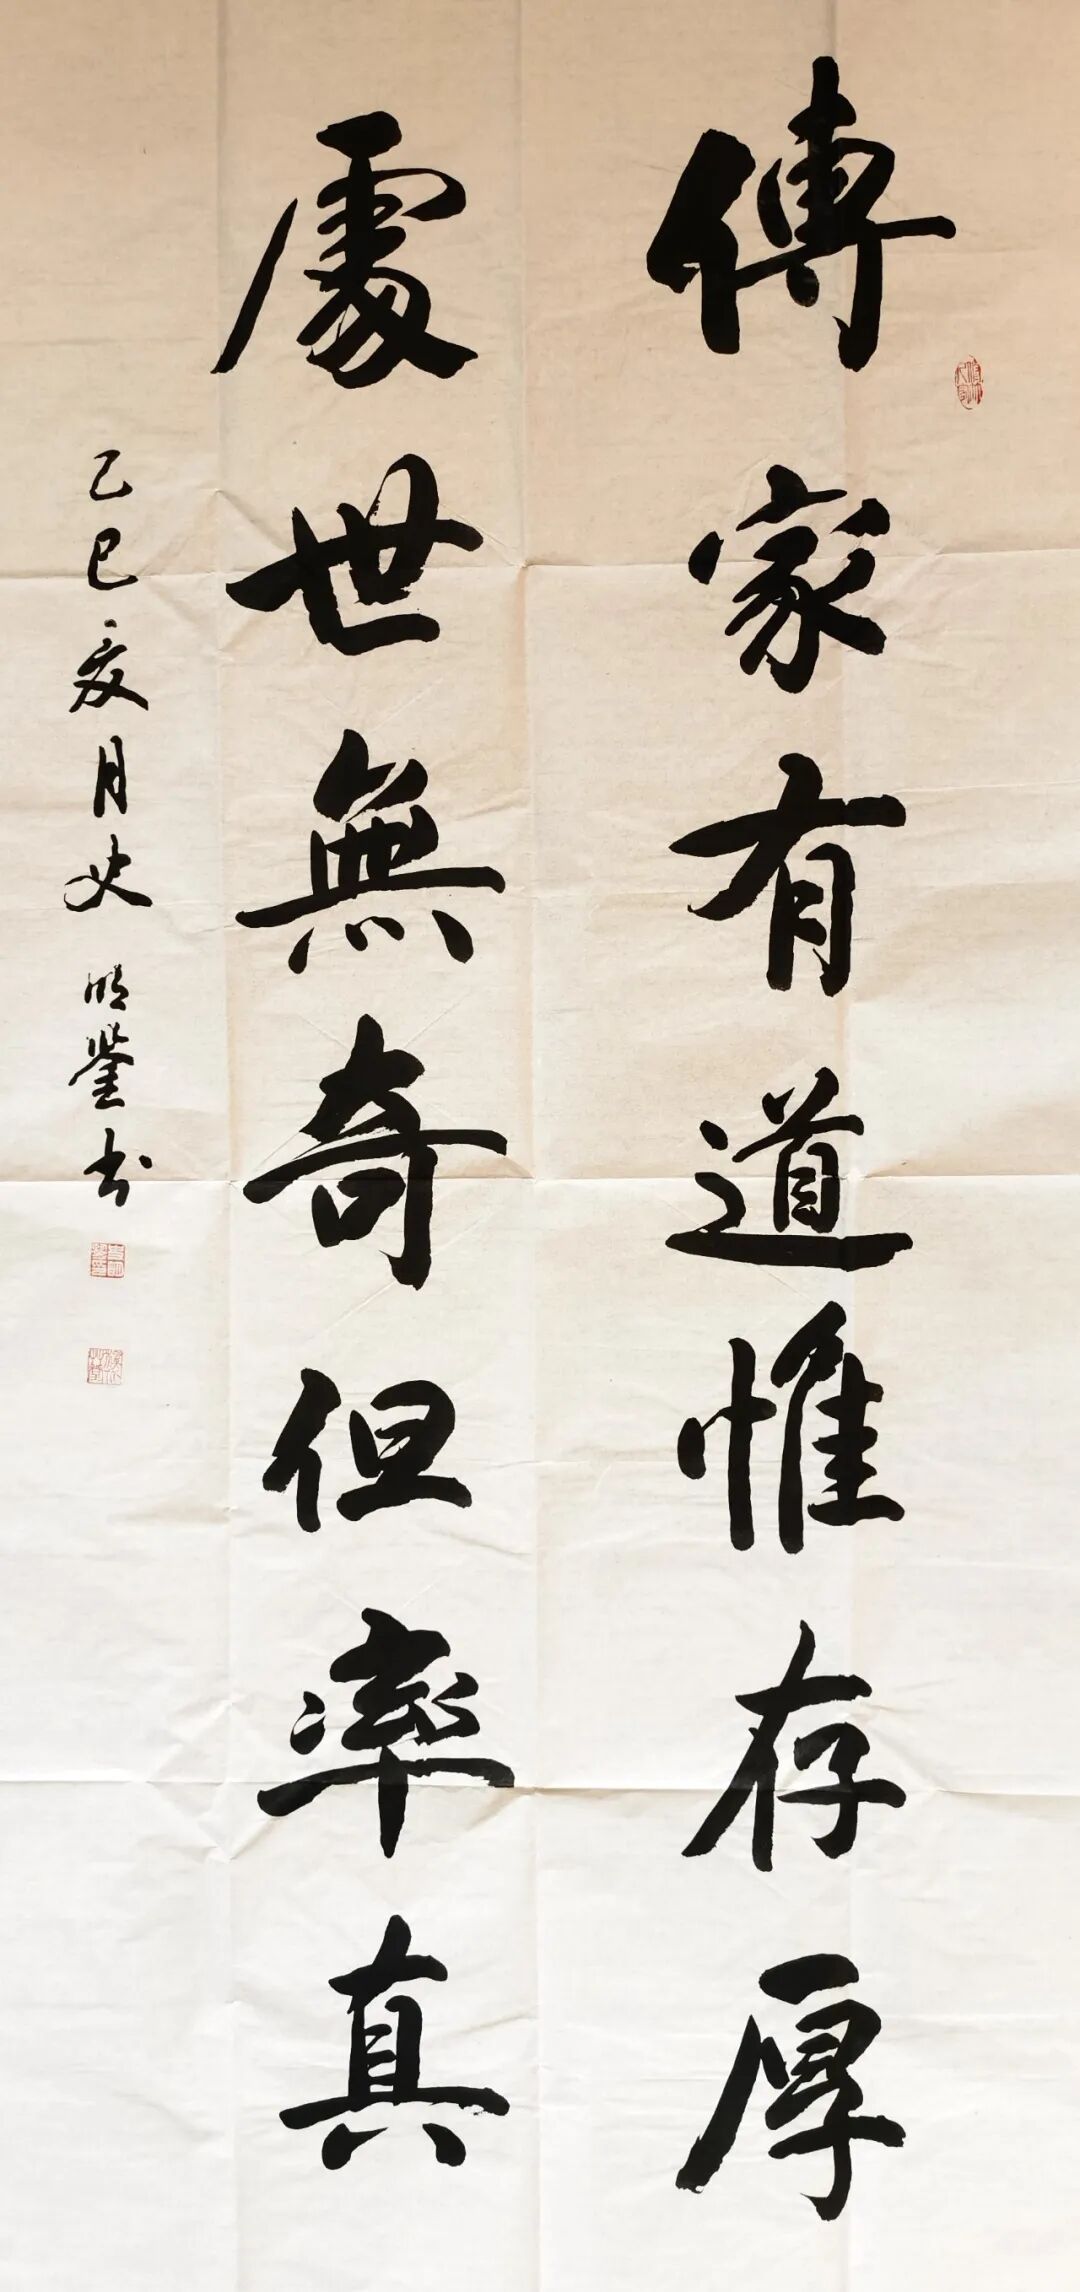 傳家有道惟存厚
處世無奇但率真
乙巳夏月史明鑒书